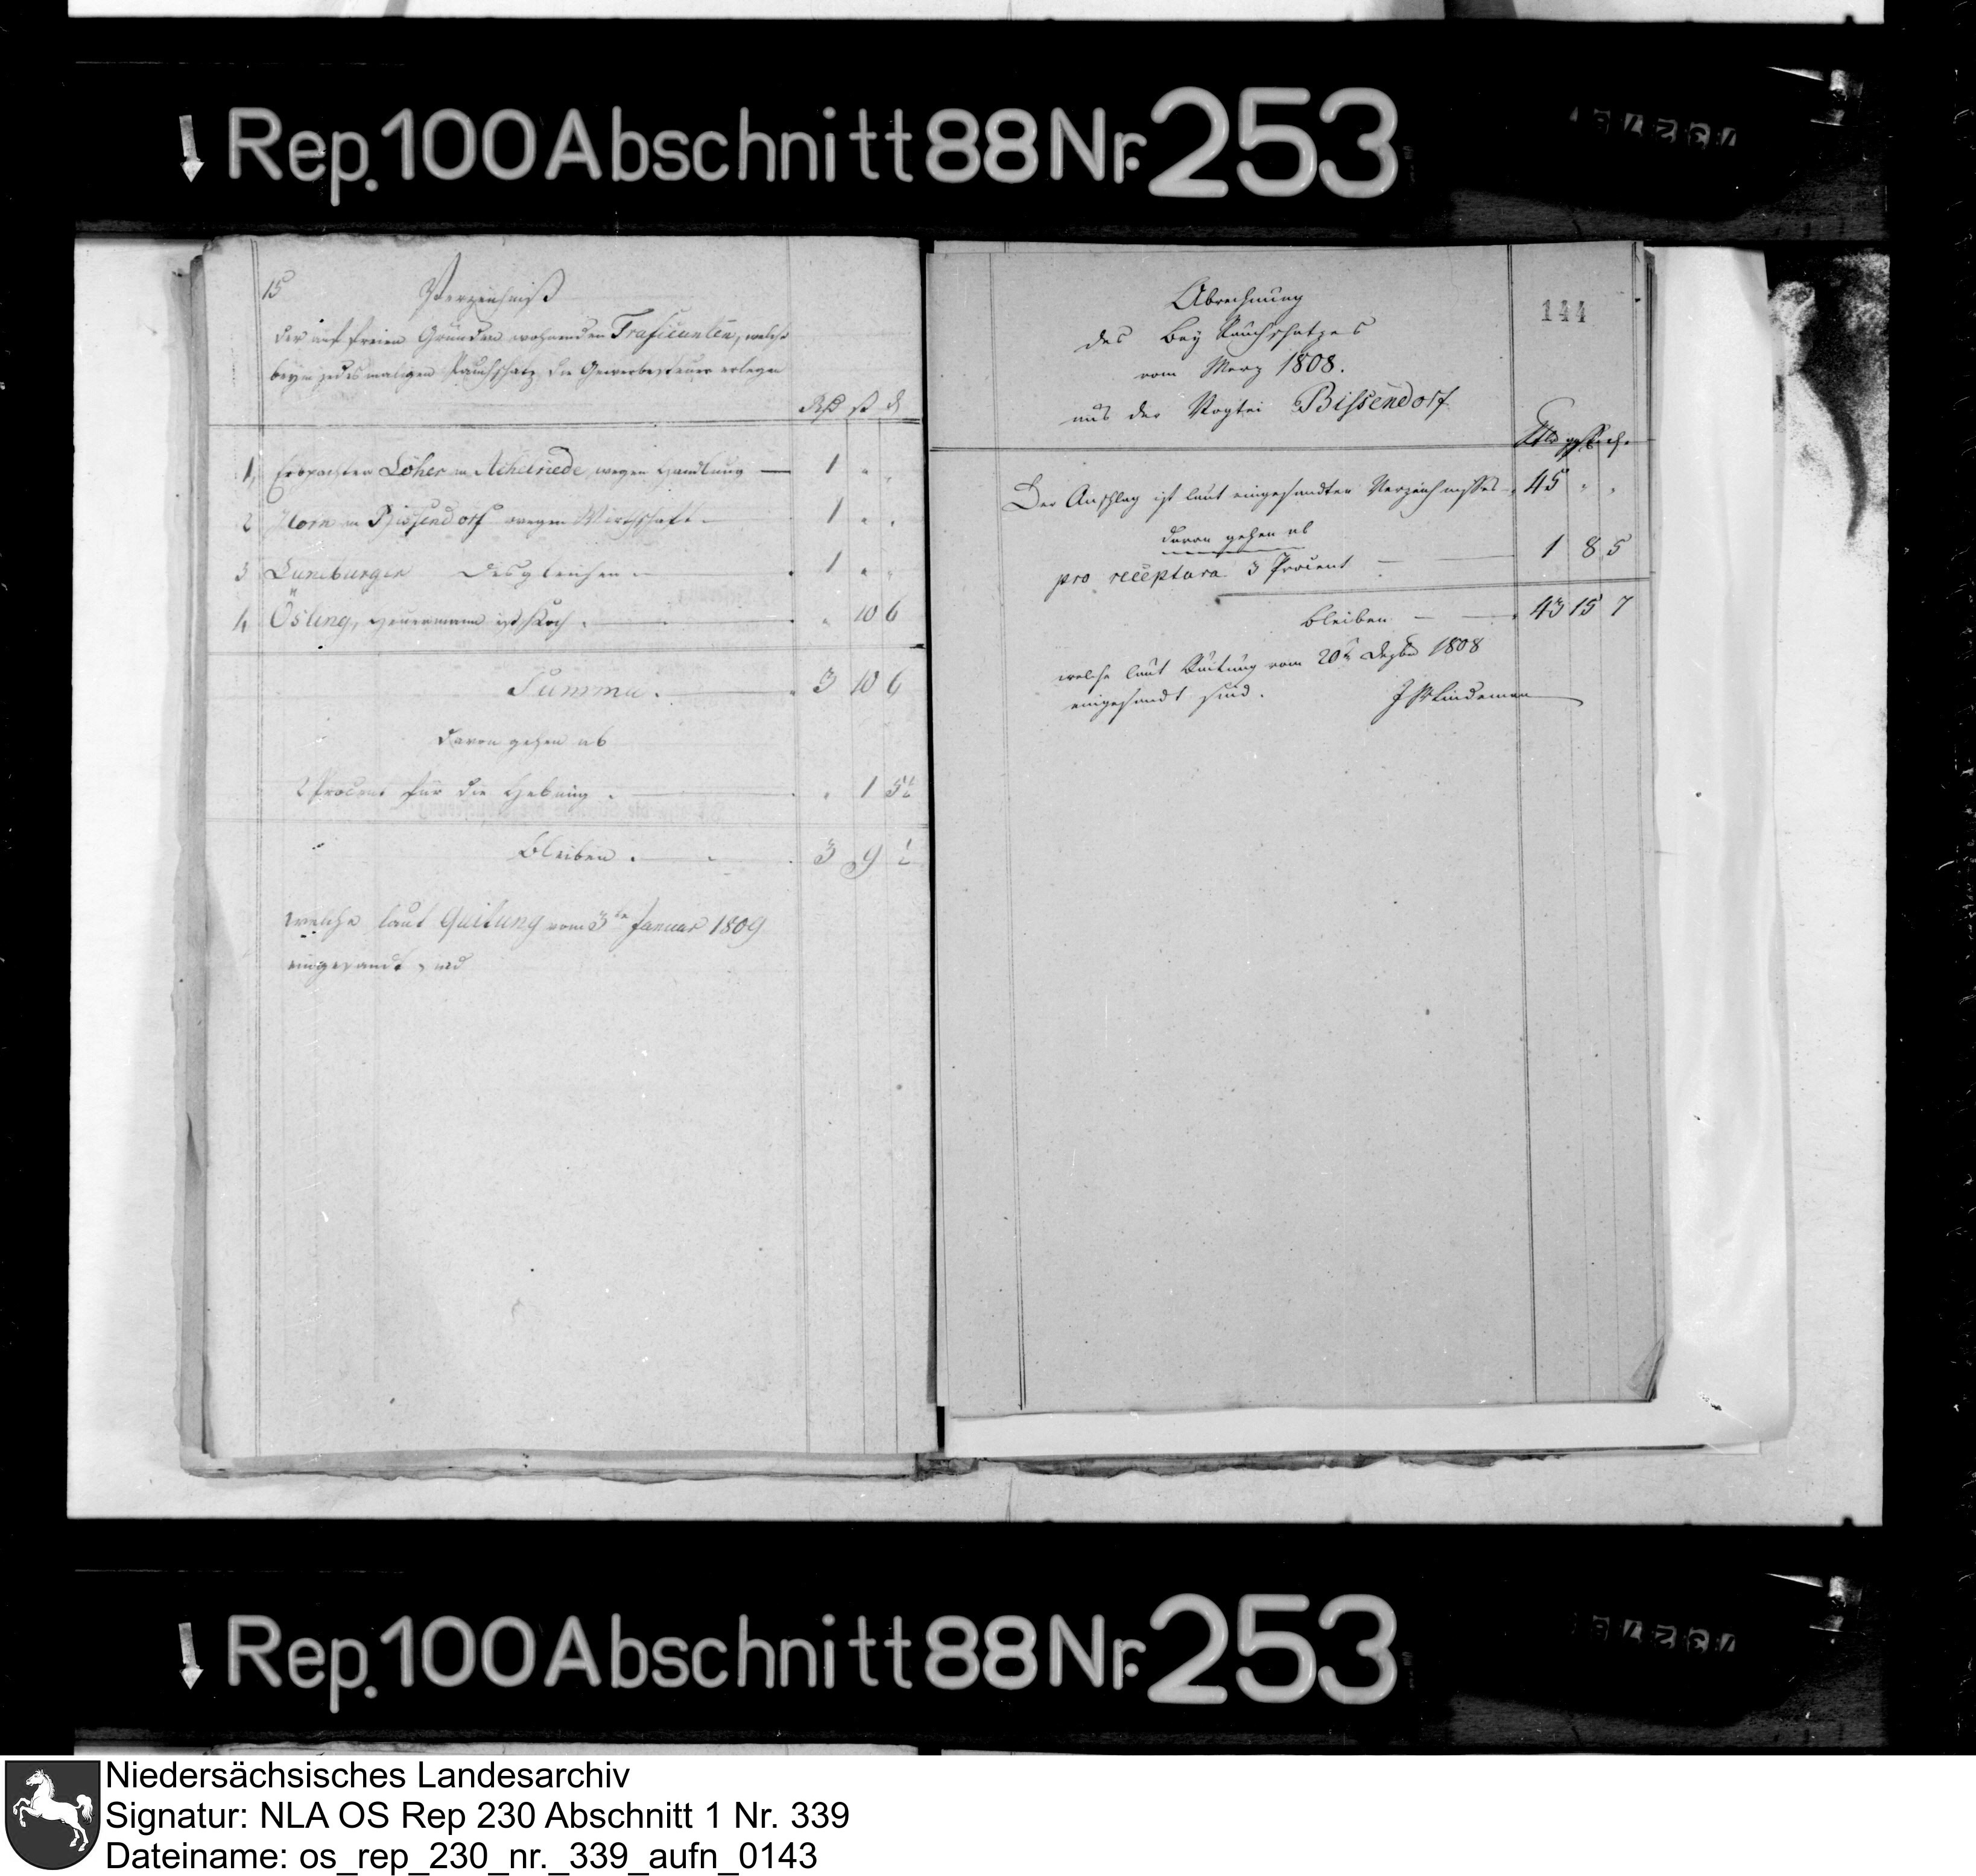 Rep. 100 Abschnitt 88 Nr. 253
15
Verzeichniß
der auf freien Gründen wohnenden Traficanten, welche
beym jedesmaligen Rauchschatz die Gewerbesteuer erlegen
1, Erbpachter Löher in Achelriede wegen Handlung — 1 " "
2 Horn in Bissendorf wegen Wirthschaft 1 " "
3 Luneburger desgleichen 1 " "
4 Ösling, Heuermann 10 6
Summa. 3 10 6
davon gehen ab
2 Procent für die Hebung. " 1 5½
bleiben. 3 9 ½
welche laut Quitung vom 3ten Januar 1809
eingesandt sind
144
Abrechnung
des Bey Rauchschatzes
vom Merz 1808.
aus der Vogtei Bissendorf
Der Anschlag ist laut eingesandten Verzeichnisses 45 " "
davon gehen ab
pro receptura 3 Procent — 1 8 5
bleiben — 43 15 7
welche laut Quitung vom 20ten Dezbr 1808
eingesandt sind. Lindeman
Rep. 100 Abschnitt 88 Nr. 253
Niedersächsisches Landesarchiv
Signatur: NLA OS Rep 230 Abschnitt 1 Nr. 339
Dateiname: os_rep_230_nr._339_aufn_0143